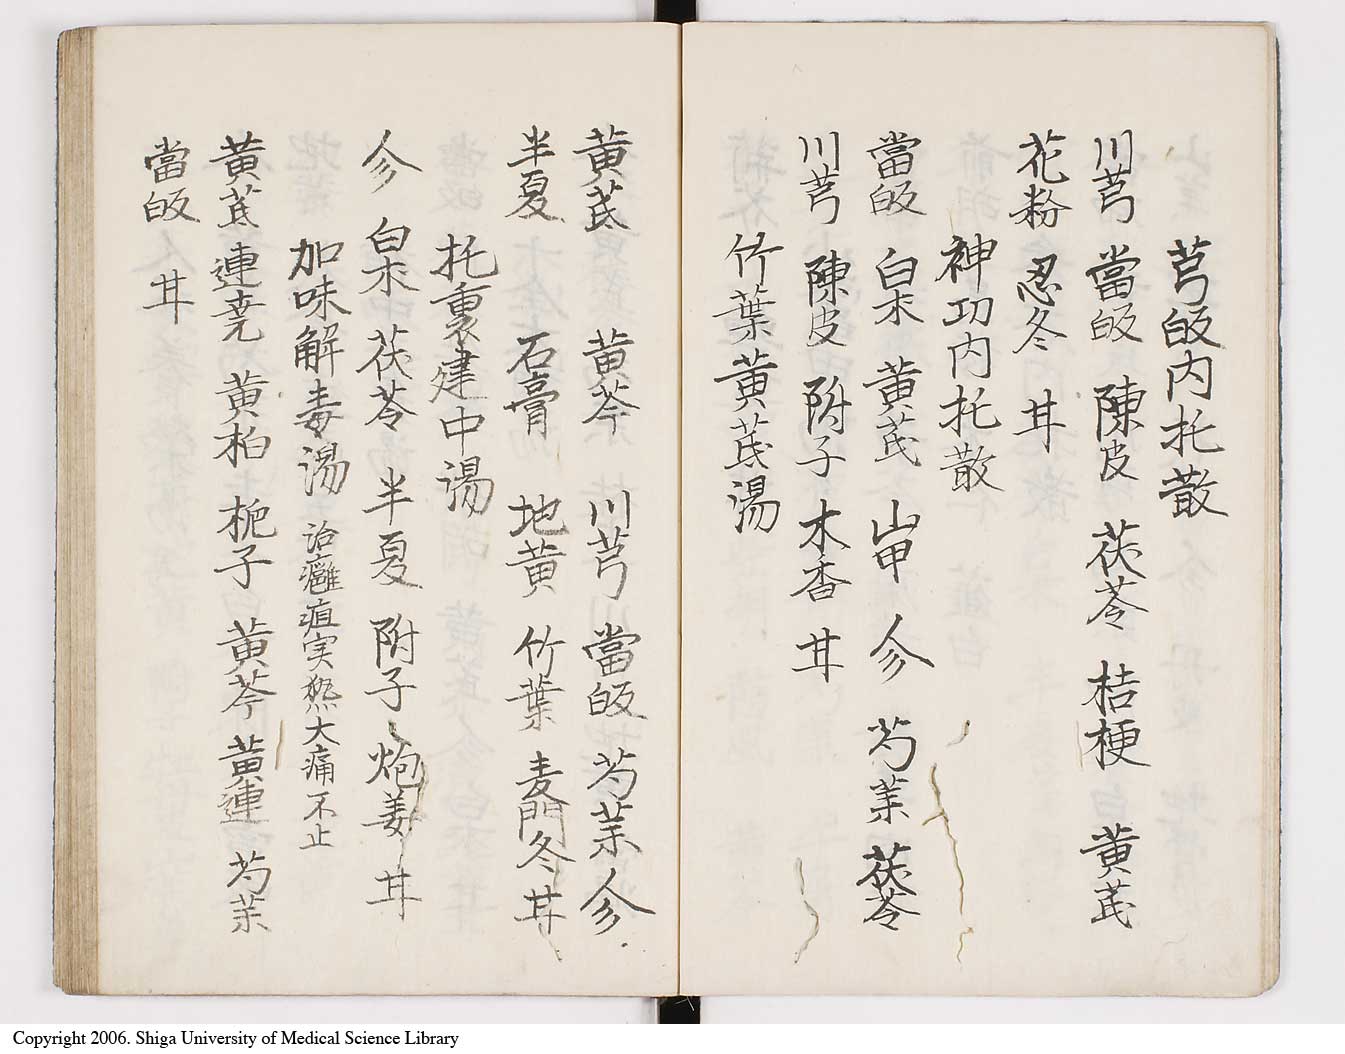 芎皈内托散
川芎 當皈 陳皮 茯苓 桔梗 黄芪
花粉 忍冬 甘
神功内托散
當皈 白朮 黄芪 山甲 參 芍藥 茯苓
川芎 陳皮 附子 木香 甘
竹葉黄芪湯
黄芪 黄芩 川芎 當皈 芍藥 參
半夏 石膏 地黄 竹葉 麦門冬 甘
托裏建中湯
參 白朮 茯苓 半夏 附子 炮姜 甘
加味解毒湯 治癰疽実熱大痛不止
黄芪 連堯 黄柏 梔子 黄芩 黄連 芍藥
當皈 甘
Copyright 2006. Shiga University of Medical Science Library